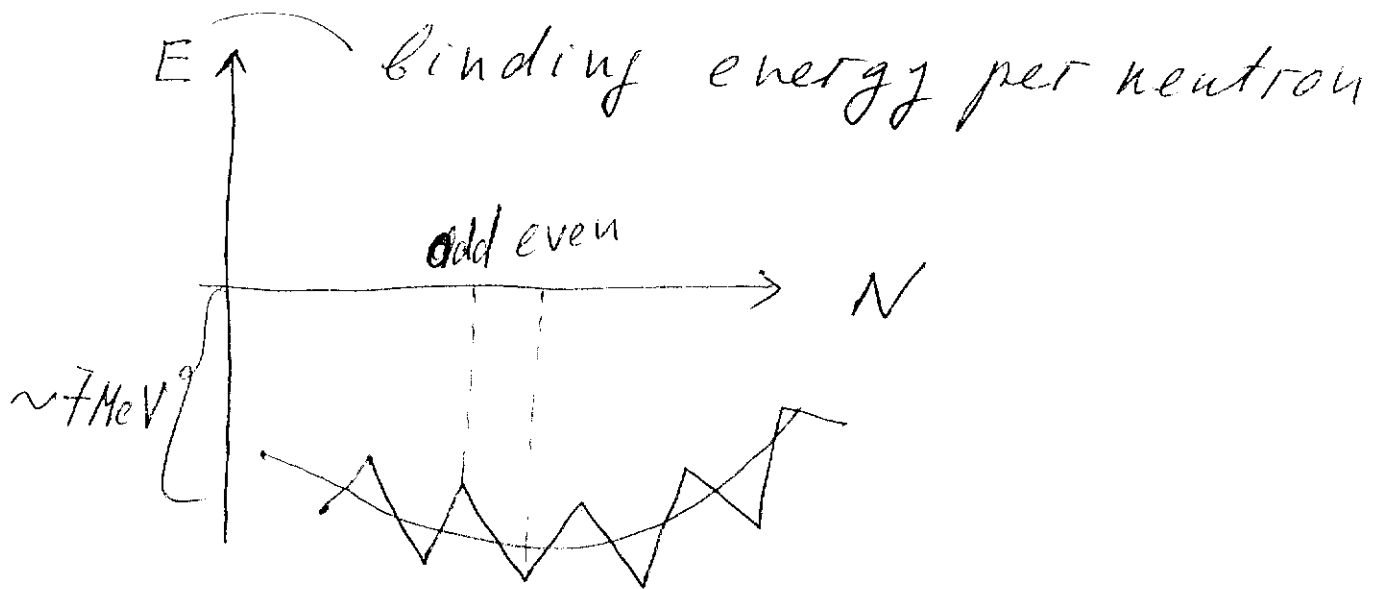 E binding energy per neutron
odd even
N
~7MeV